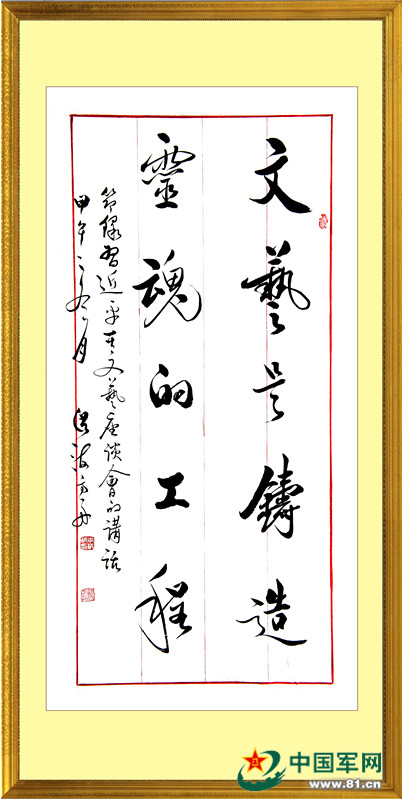 文藝是鑄造
靈魂的工程
節錄習近平在文藝座談會的講話
甲午 月
中国军网
www.81.cn